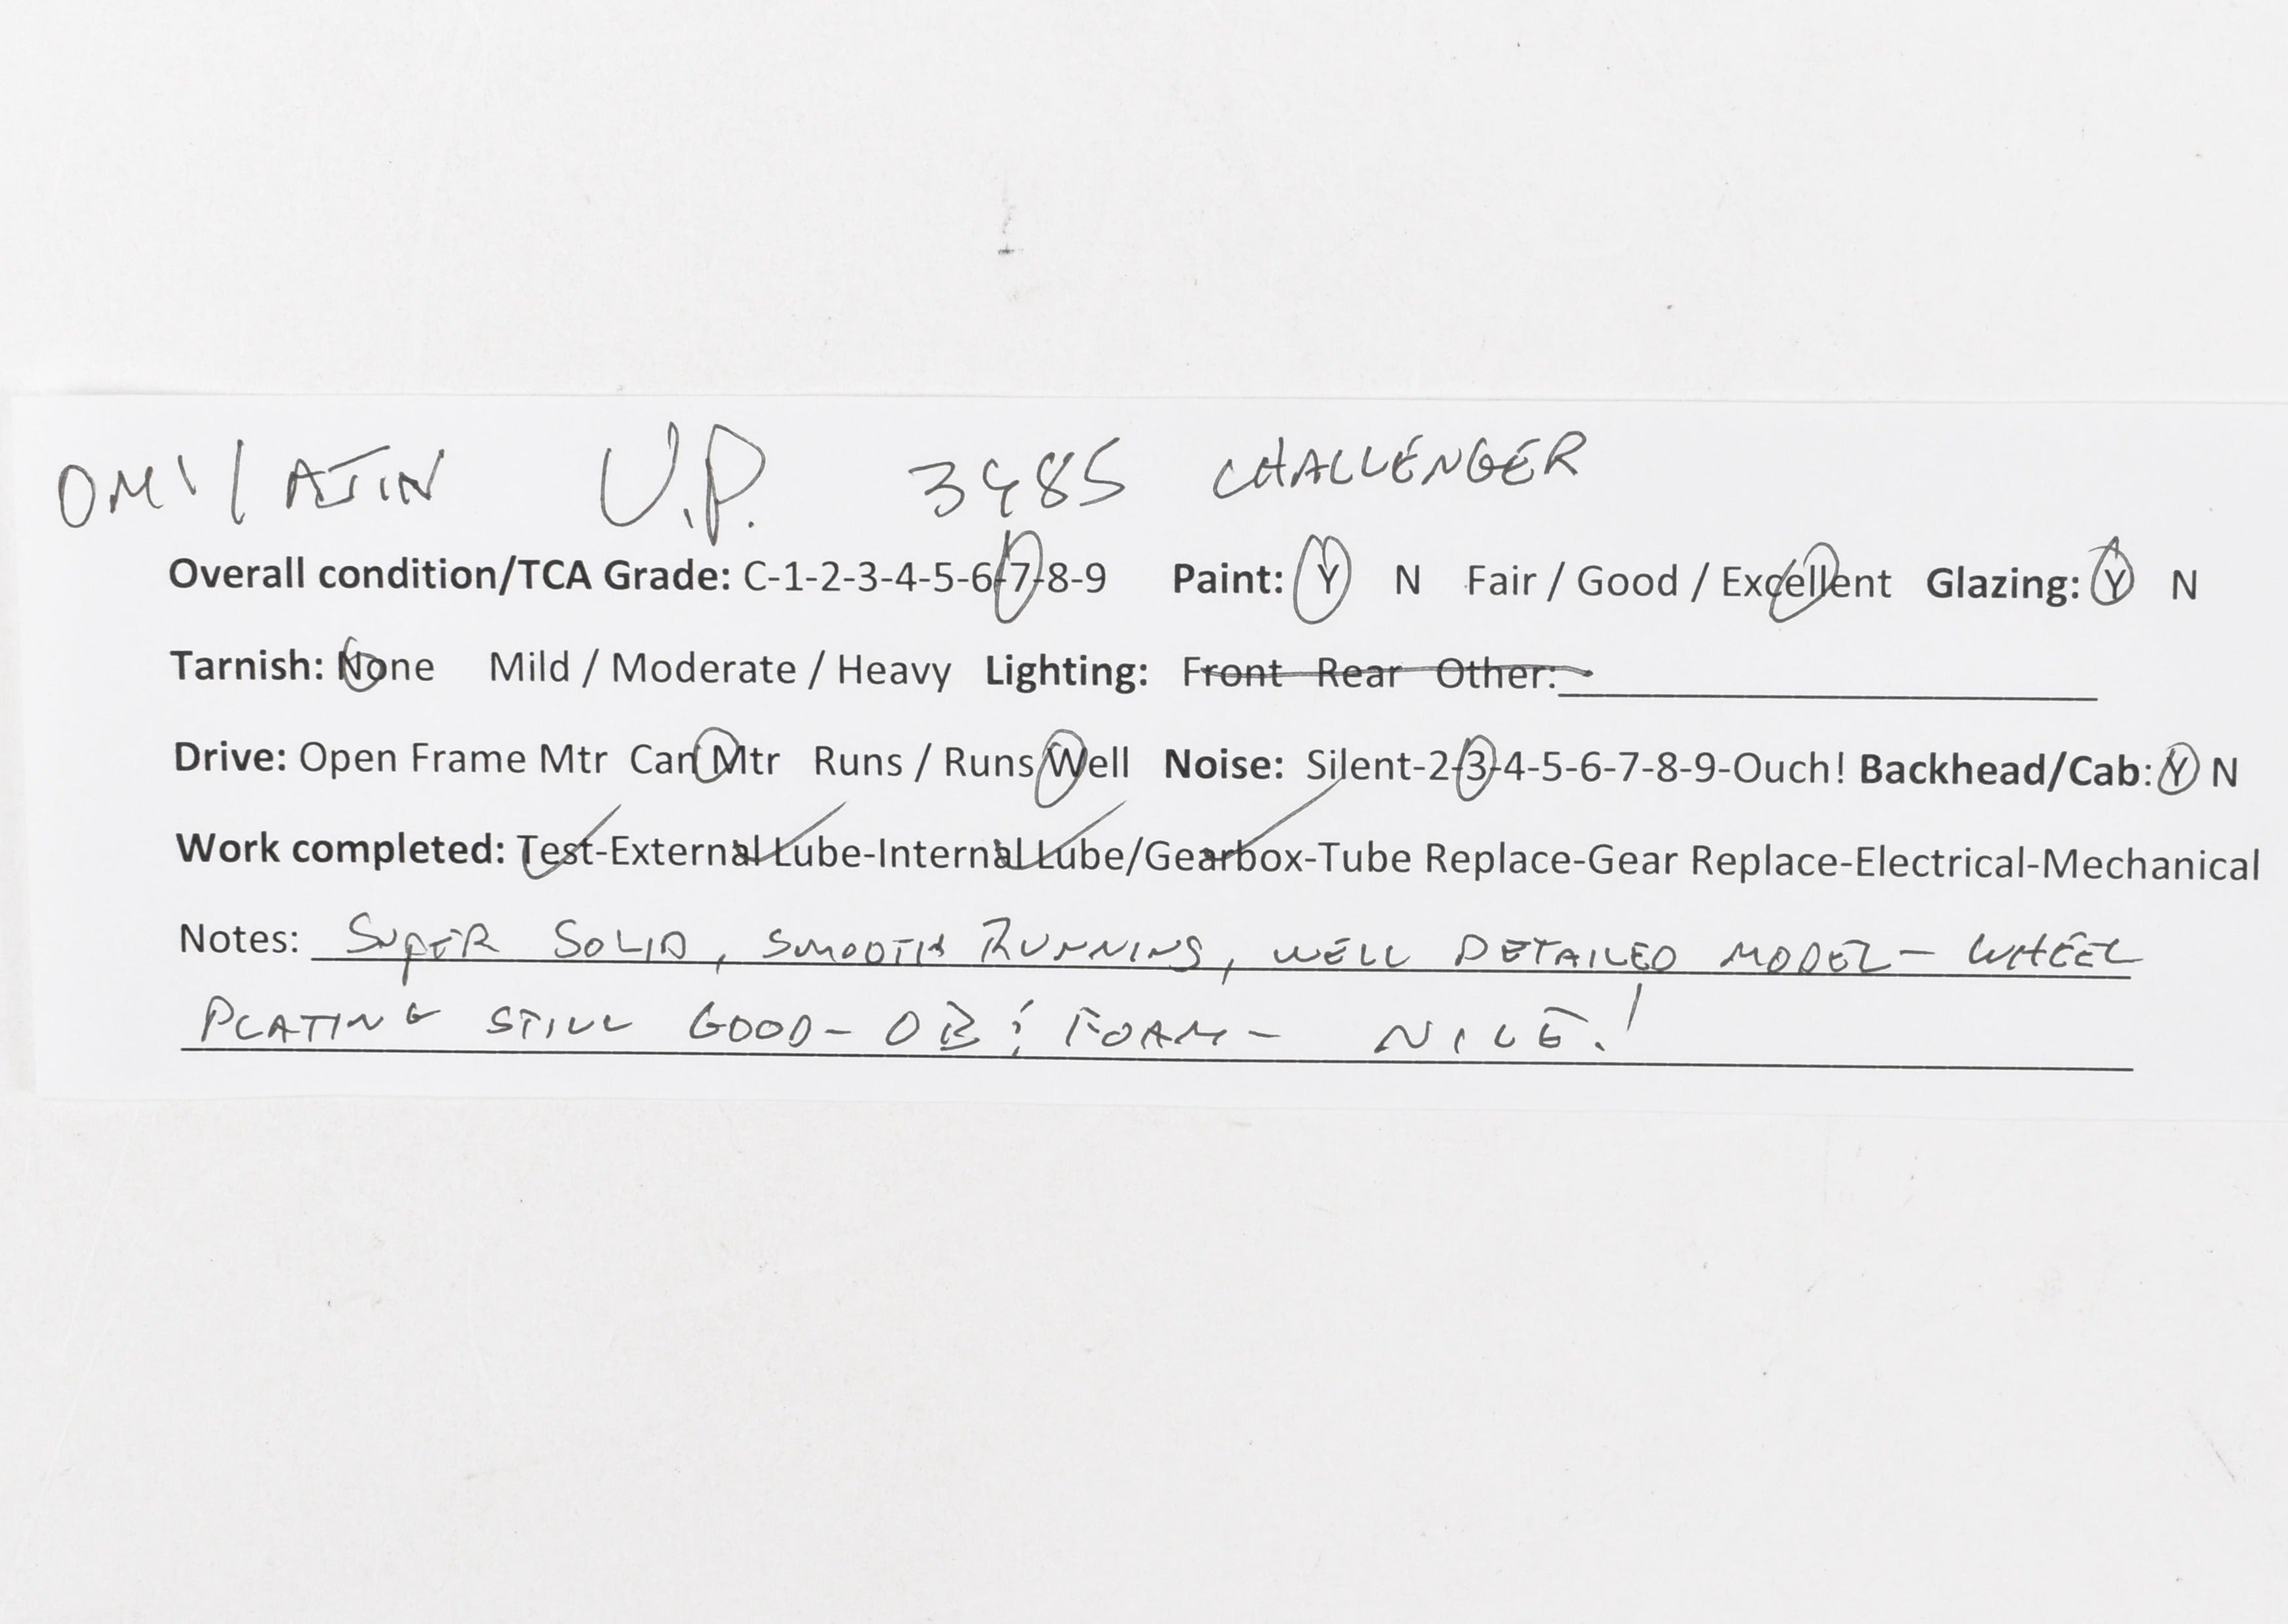 OMI/AJIN U.P. 3985 CHALLENGER
Overall condition/TCA Grade: C-1-2-3-4-5-6-7-8-9 Paint: Y N Fair / Good / Excellent Glazing: Y N
Tarnish: None Mild / Moderate / Heavy Lighting: Front Rear Other:
Drive: Open Frame Mtr Can Mtr Runs / Runs Well Noise: Silent-2-3-4-5-6-7-8-9-Ouch! Backhead/Cab: Y N
Work completed: Test-External Lube-Internal Lube/Gearbox-Tube Replace-Gear Replace-Electrical-Mechanical
Notes: SUPER SOLID, SMOOTH RUNNING, WELL DETAILED MODEL - WHEEL
PLATING STILL GOOD - OB & FOAM - NICE!